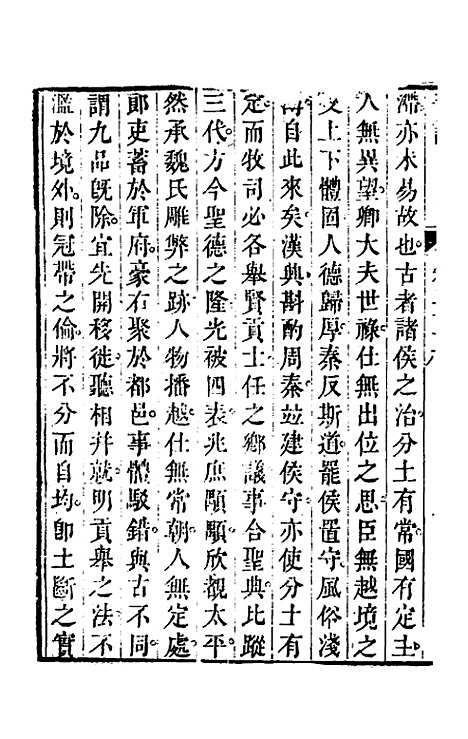 滯亦未易故也古者諸侯之治分土有常國有定主
人無異望卿大夫世祿仕無出位之思臣無越境之
交上下體固人德歸厚秦反斯道罷侯置守風俗淺
自此來矣漢興斟酌周秦竝建侯守亦使分土有
定而牧司必各舉賢貢士任之鄉議事合聖典比蹤
三代方今聖德之隆光被四表兆庶顒顒欣覩太平
然承魏氏雕弊之跡人物播越仕無常朝人無定處
郎吏蓄於軍府豪右聚於都邑事體駁錯與古不同
謂九品旣除宜先開移徙聽相幷就明貢舉之法不
濫於境外則冠帶之倫將不分而自均卽土斷之實